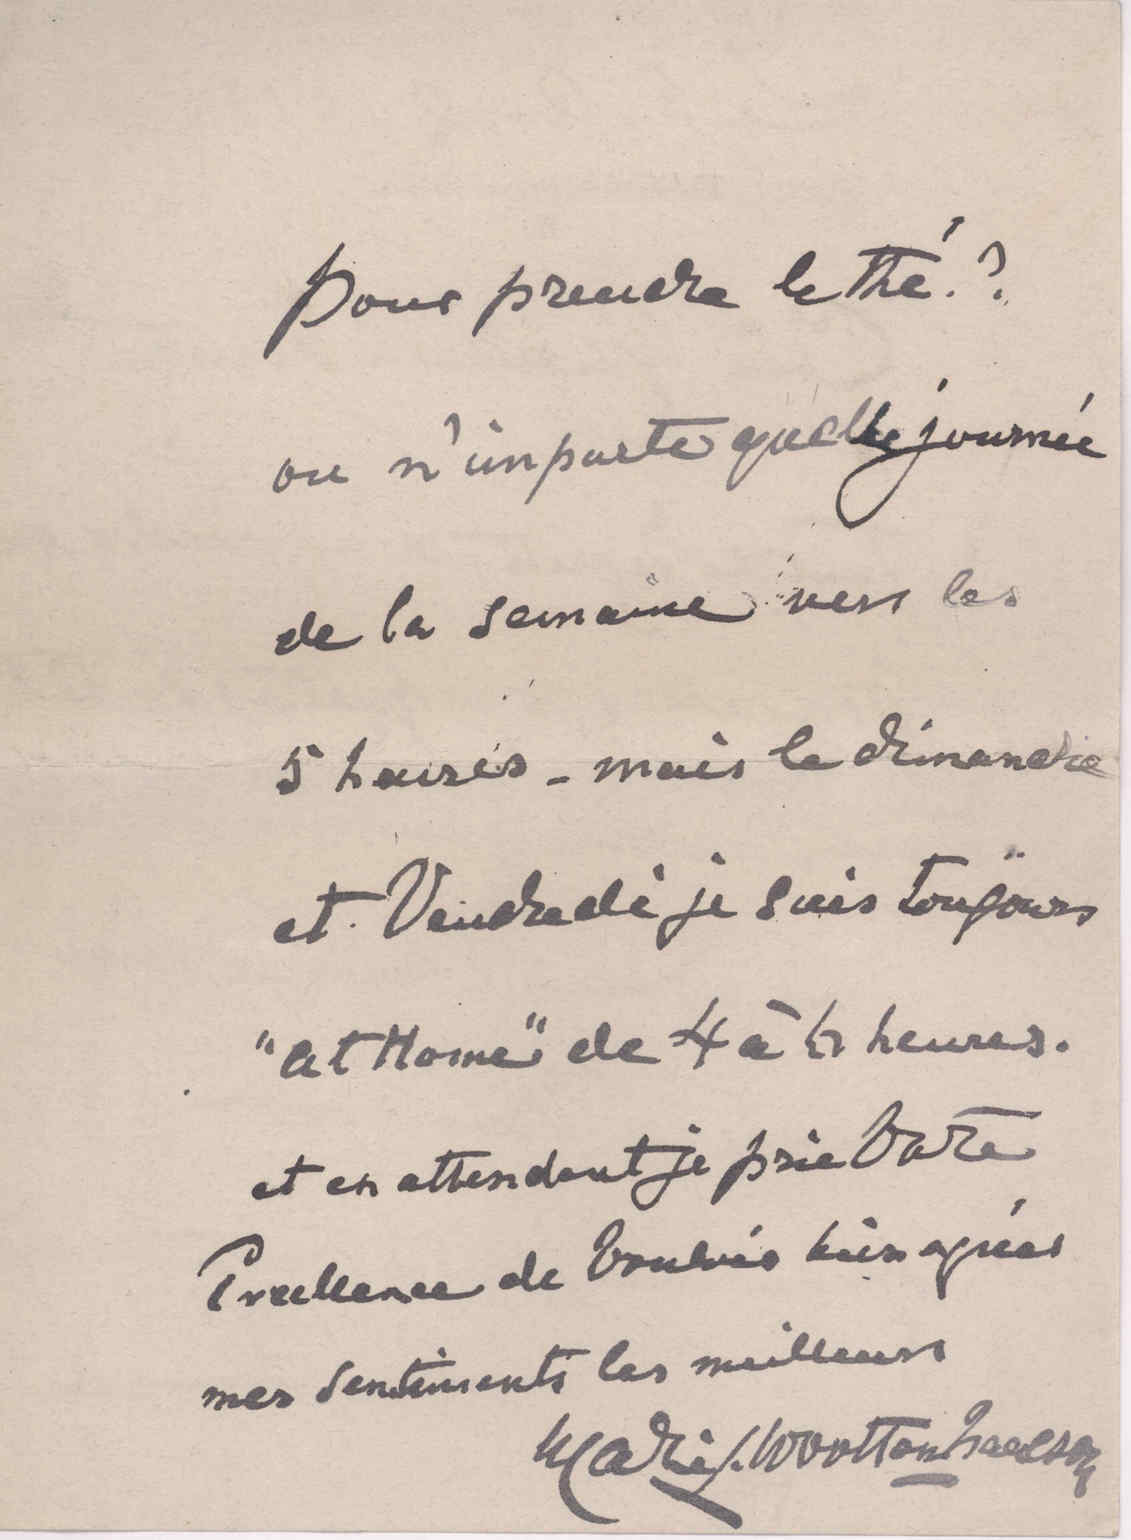 Pour prendre le thé. ?
ou n'importe quelle journée
de la semaine vers les
5 heures - mais le dimanche
et Vendredi je suis toujours
"at Home" de 4 à 7 heures.
et en attendant je prie Votre
Excellence de Vouloir bien agréer
mes sentiments les meilleurs
Marie Wootton